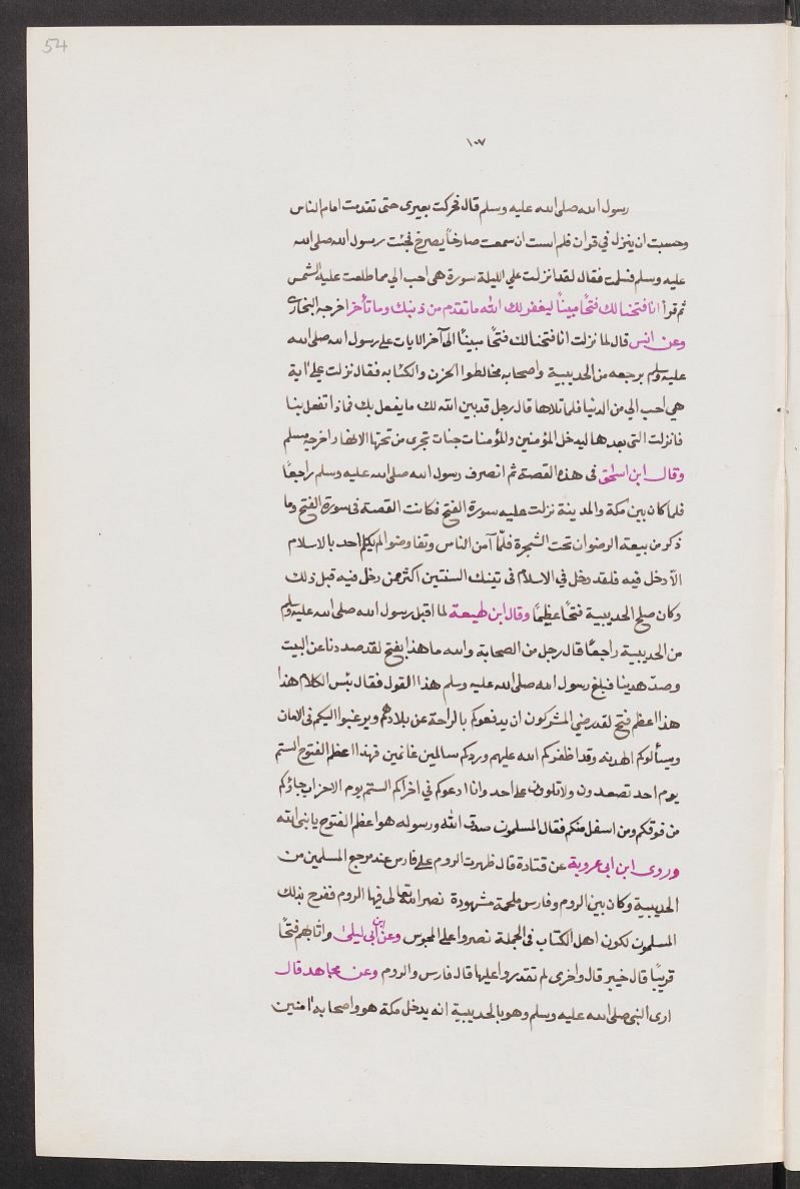 54
١٠٧
رسول الله صلى الله عليه وسلم قال فحركت بعيرى حتى تقدمت امام الناس
وحسبت ان ينزل في قران فلم است ان سمعت صارخاً يصرخ فجئت رسول الله صلى الله
عليه وسلم فسلمت فقال لقد انزلت علي الليلة سورة هى احب الي مما طلعت عليه الشمس
ثم قرأ انا فتحنا لك فتحًا مبينًا ليغفر لك الله ما تقدم من ذنبك وما تأخر اخرجه البخارى
وعن انس قال لما نزلت انا فتحنا لك فتحًا مبينًا الى آخر الايات على رسول الله صلى الله
عليه وسلم برجعه من الحديبية واصحابه مخالطوا الحزن والكئابه فقال نزلت علي اية
هى احب الي من الدنيا فلما تلاها قال رجل قد بين الله لك ما يفعل بك فماذا تفعل بنا
فانزلت التى بعدها ليدخل المؤمنين والمؤمنات جنات تجرى من تحتها الانهار اخرجه مسلم
وقال ابن اسحق فى هذه القصة ثم انصرف رسول الله صلى الله عليه وسلم راجعًا
فلما كان بين مكة والمدينة نزلت عليه سورة الفتح فكانت القصة فى سورة الفتح وما
ذكر من بيعته الرضوان تحت الشجرة فلمّا آمن الناس وتفاوضوا لم يكلم احد بالاسلام
الّا دخل فيه فلقد دخل في الاسلام فى تينك السنتين اكثر ممن دخل فيه قبل ذلك
وكان صلح الحديبية فتحًا عظيمًا وقال ابن لهيعة لما اقبل رسول الله صلى الله عليه وسلم
من الحديبية راجعًا قال رجل من الصحابة والله ما هذا بفتح لقد صددنا عن البيت
وصدّ هدينا فبلغ رسول الله صلى الله عليه وسلم هذا القول فقال بئس الكلام هذا
هذا اعظم فتح لقد رضي المشركون ان يدفعوكم بالراحة عن بلادهم ويرغبوا اليكم فى الامان
ويسألوكم الهدنه وقد اظفركم الله عليهم وردكم سالمين غانمين فهذا اعظم الفتوح الستم
يوم احد تصعدون ولا تلوون على احد وانا ادعوكم في اخراكم الستم يوم الاحزاب جاؤكم
من فوقكم ومن اسفل منكم فقال المسلمون صدق الله ورسوله هو اعظم الفتوح يا نبى الله
وروى ابن ابى عروبة عن قتادة قال ظهرت الروم على فارس عند مرجع المسلمين من
الحديبية وكان بين الروم وفارس ملحمة مشهودة نصر الله تعالى فيها الروم ففرح بذلك
المسلمون لكون اهل الكتاب فى الجملة نصروا على المجوس وعن ابن ابى ليلى واثابهم فتحًا
قريبًا قال خيبر قال واخرى لم تقدروا عليها قال فارس والروم وعن مجاهد قال
ارى النبى صلى الله عليه وسلم وهو بالحديبية انه يدخل مكة هو واصحابه امنين